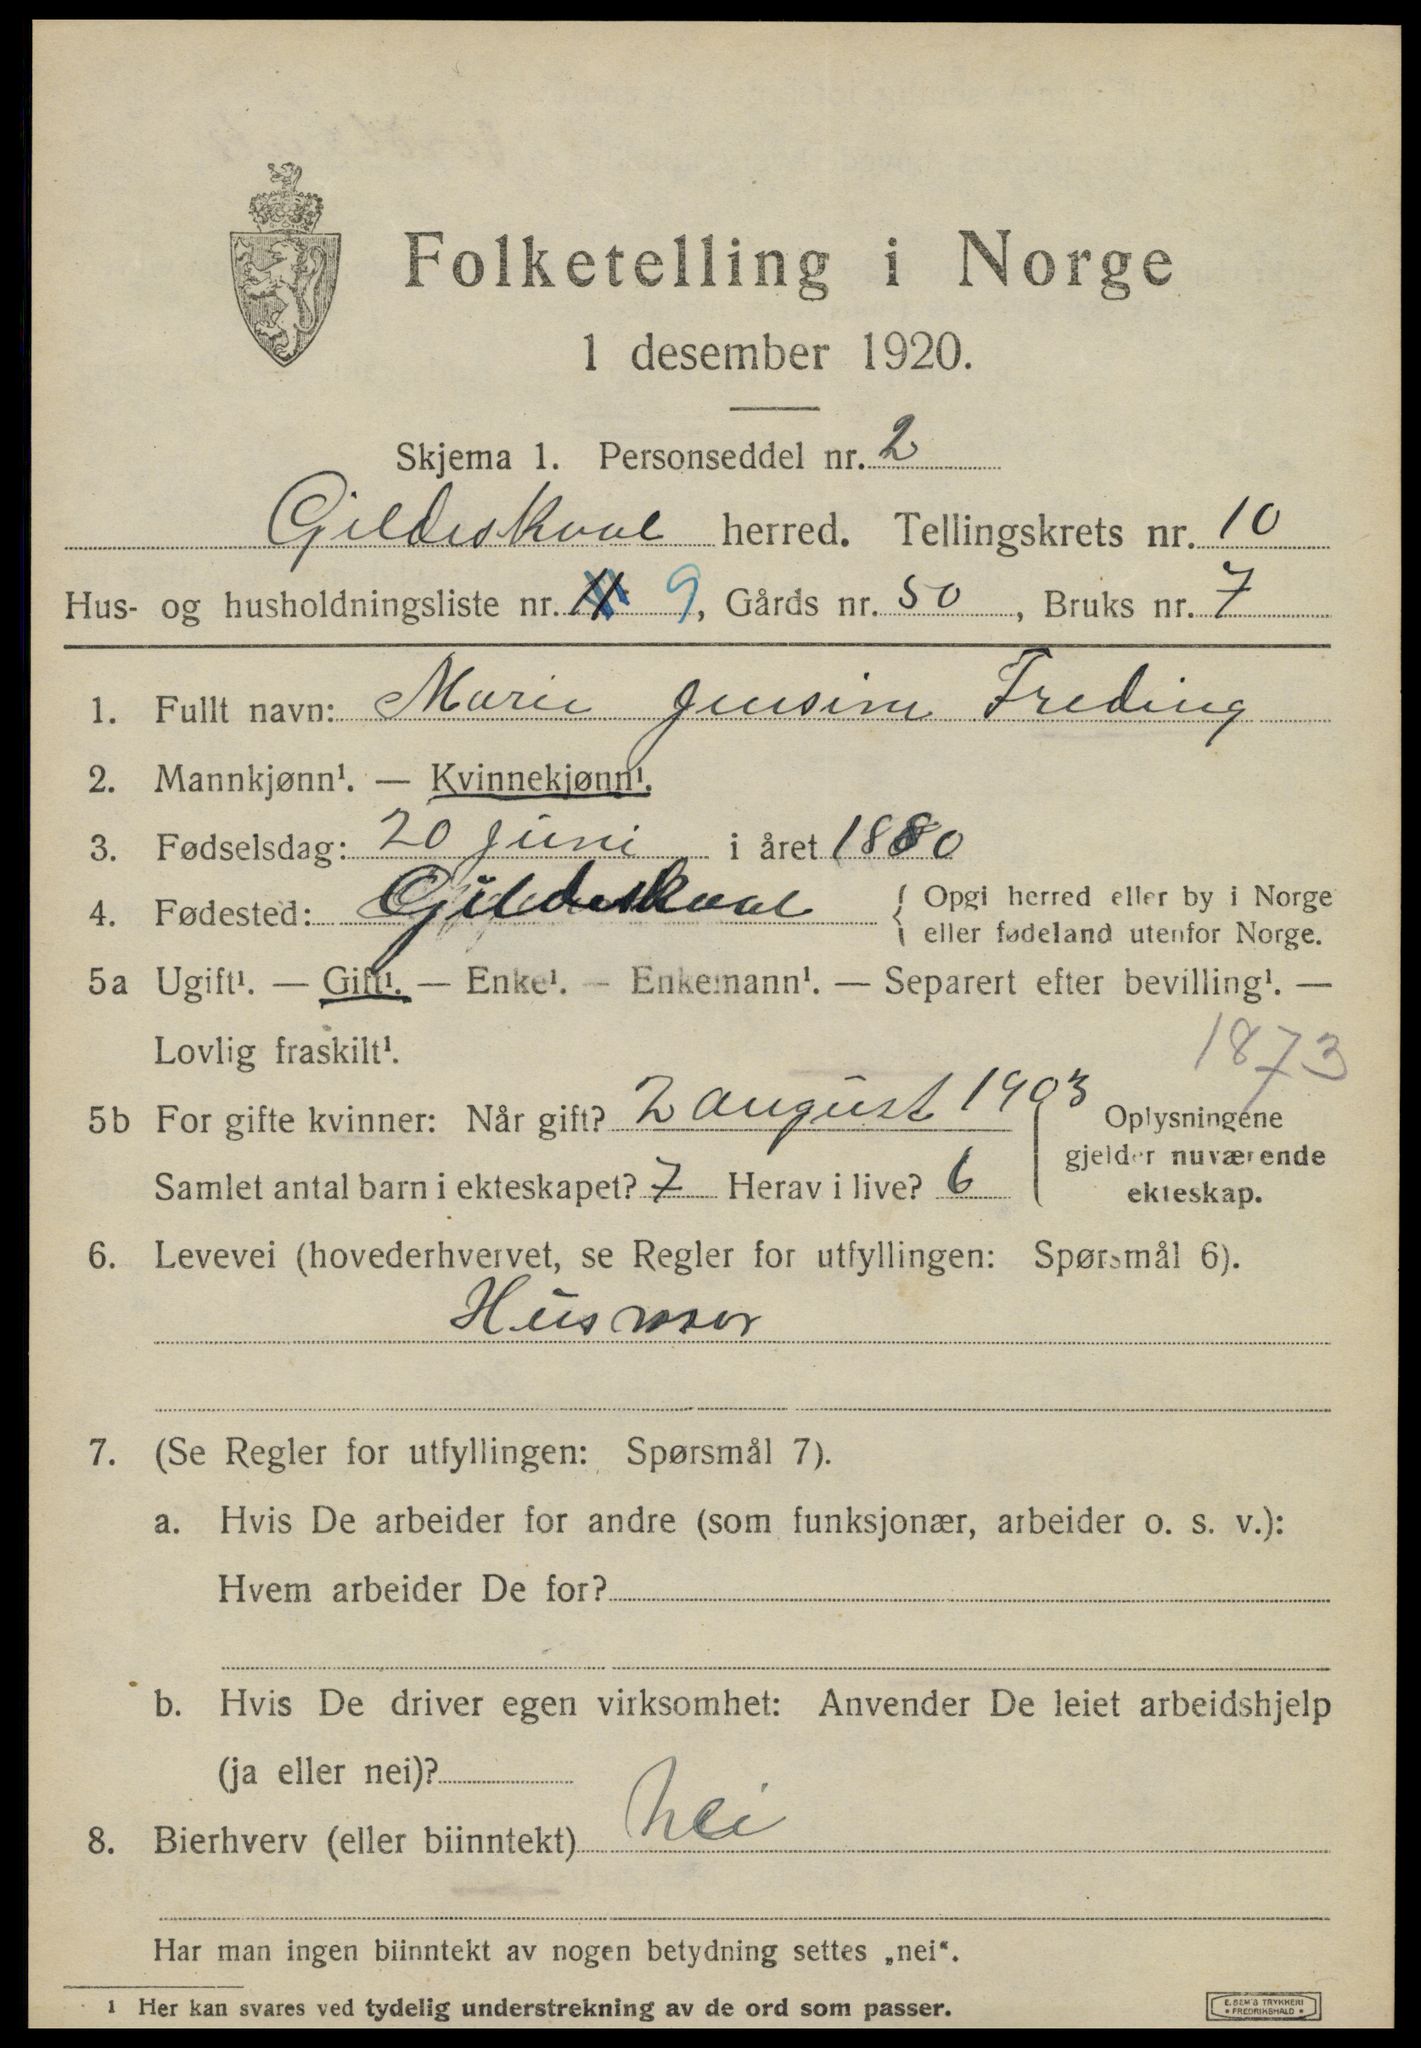 Folketelling i Norge
1 desember 1920.
Skjema 1. Personseddel nr. 2
Gildeskaal herred. Tellingskrets nr. 10
Hus- og husholdningsliste nr. 11 9, Gårds nr. 50, Bruks nr. 7
1. Fullt navn: Marie Jensine Freding
2. Mannkjønn¹. — Kvinnekjønn¹.
3. Fødselsdag: 20 juni i året 1880
4. Fødested: Gildeskaal { Opgi herred eller by i Norge
eller fødeland utenfor Norge.
5a Ugift¹. — Gift¹. — Enke¹. — Enkemann¹. — Separert efter bevilling¹. —
Lovlig fraskilt¹.
1873
5b For gifte kvinner: Når gift? 2 august 1903
Samlet antal barn i ekteskapet? 7 Herav i live? 6
Oplysningene
gjelder nuværende
ekteskap.
6. Levevei (hovederhvervet, se Regler for utfyllingen: Spørsmål 6).
Husmor
7. (Se Regler for utfyllingen: Spørsmål 7).
a. Hvis De arbeider for andre (som funksjonær, arbeider o. s. v.):
Hvem arbeider De for?
b. Hvis De driver egen virksomhet: Anvender De leiet arbeidshjelp
(ja eller nei)?
8. Bierhverv (eller biinntekt) Nei
Har man ingen biinntekt av nogen betydning settes „nei“.
1 Her kan svares ved tydelig understrekning av de ord som passer.
E. SEM'S TRYKKERI
* FREDRIKSHALD *